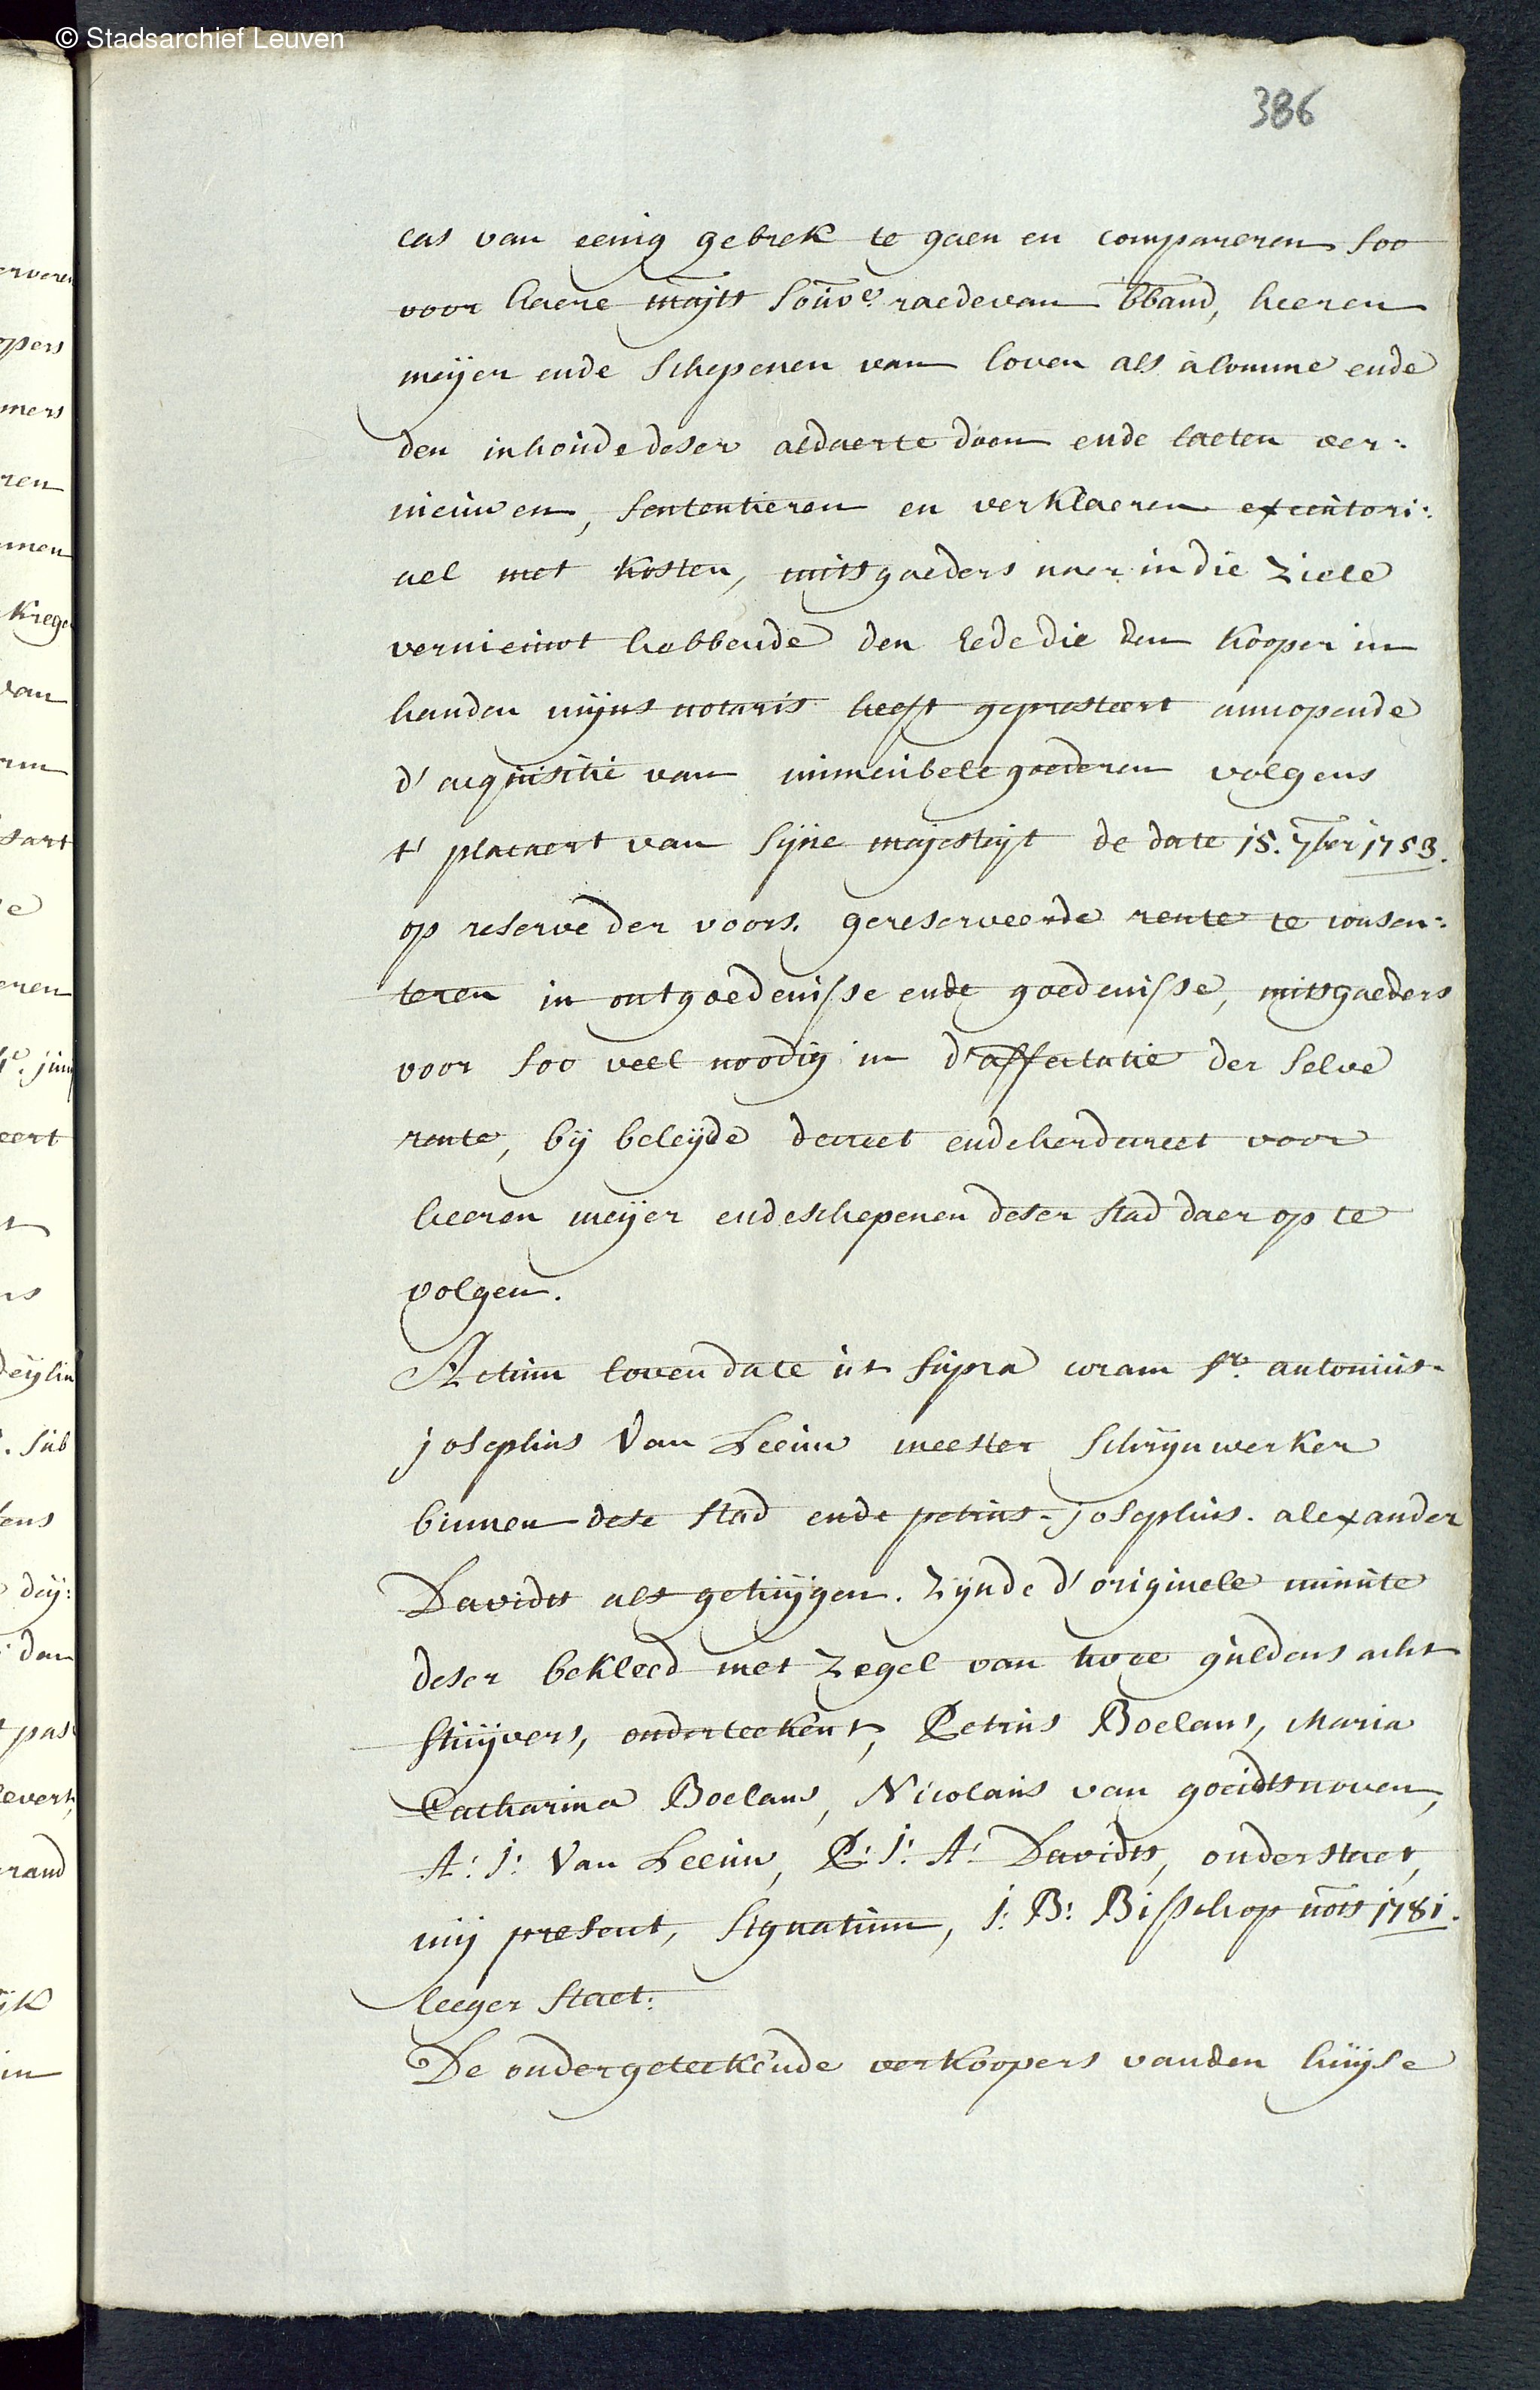 © Stadsarchief Leuven
386
cas van eenig gebrek te gaen en compareren soo
voor haere majts souve raede van bband, heeren
meijer ende schepenen van loven als alomme ende
den inhoude deser aldaer te doen ende laeten ver:
nieuwen, sententieren en verklaeren executori:
ael met kosten, mitsgaeders naer in die ziele
vernieuwt hebbende den eede die den kooper in
handen mijns notaris heeft gepresteert aengaende
d'acquisitie van immeubele goederen volgens
t' placaert van sijne majesteijt de date 15. 7ber 1753.
op reserve der voors. gereserveerde rente te consen:
teren in ontgoedenisse ende goedenisse, mitsgaeders
voor soo veel noodig in d'affectatie der selve
rente, bij beleijde decreet ende herdecreet voor
heeren meijer ende schepenen deser stad daer op te
volgen.
Actum loven date ut supra coram sr. antonius-
josephus Van Leeuw meester schrijnwerker
binnen dese stad ende petrus-josephus. alexander
Davidts als getuijgen. Zijnde d'originele minute
deser bekleed met zegel van twee guldens acht
stuijvers, onderteekent, Petrus Boelans, Maria
Catharina Boelans, Nicolaus van goeidtsnoven,
A: J: Van Leeuw, P: J: A: Davidts, onderstaet,
mij present, signatum, J: B: Bisschop nots 1781.
leeger staet:
De ondergeteekende verkoopers vanden huijse